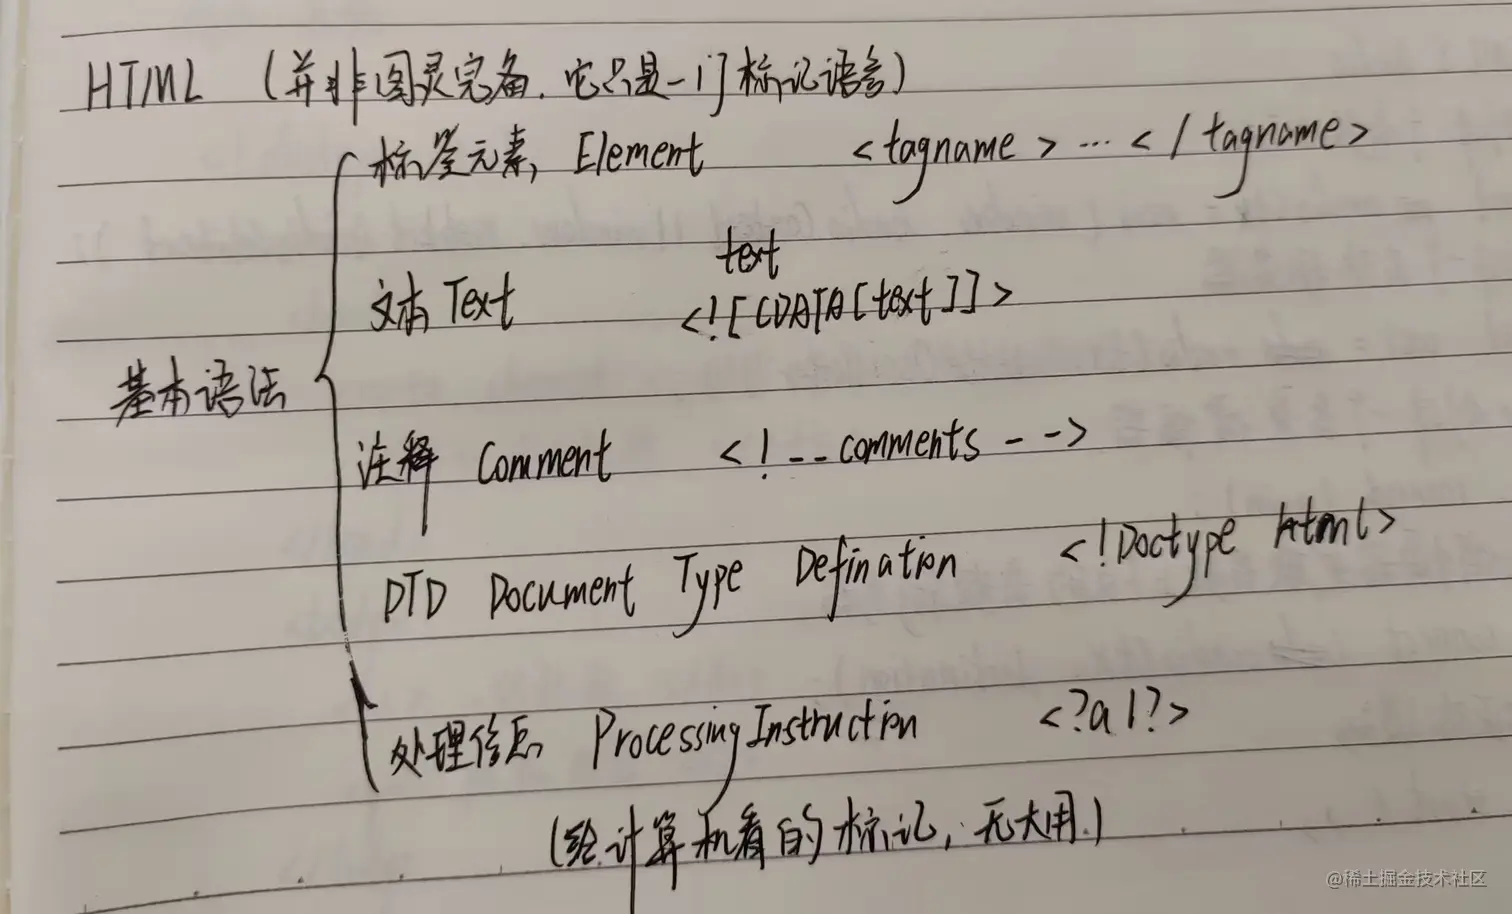 HTML (并非图灵完备.它只是一门标记语言)
标签元素, Element <tagname> ... </tagname>
text
文本 Text <![CDATA[text]]>
基本语法
注释 Comment <!--comments-->
DTD Document Type Defination <!Doctype html>
处理信息 ProcessingInstruction <?a 1?>
(给计算机看的标记,无大用.)
@稀土掘金技术社区